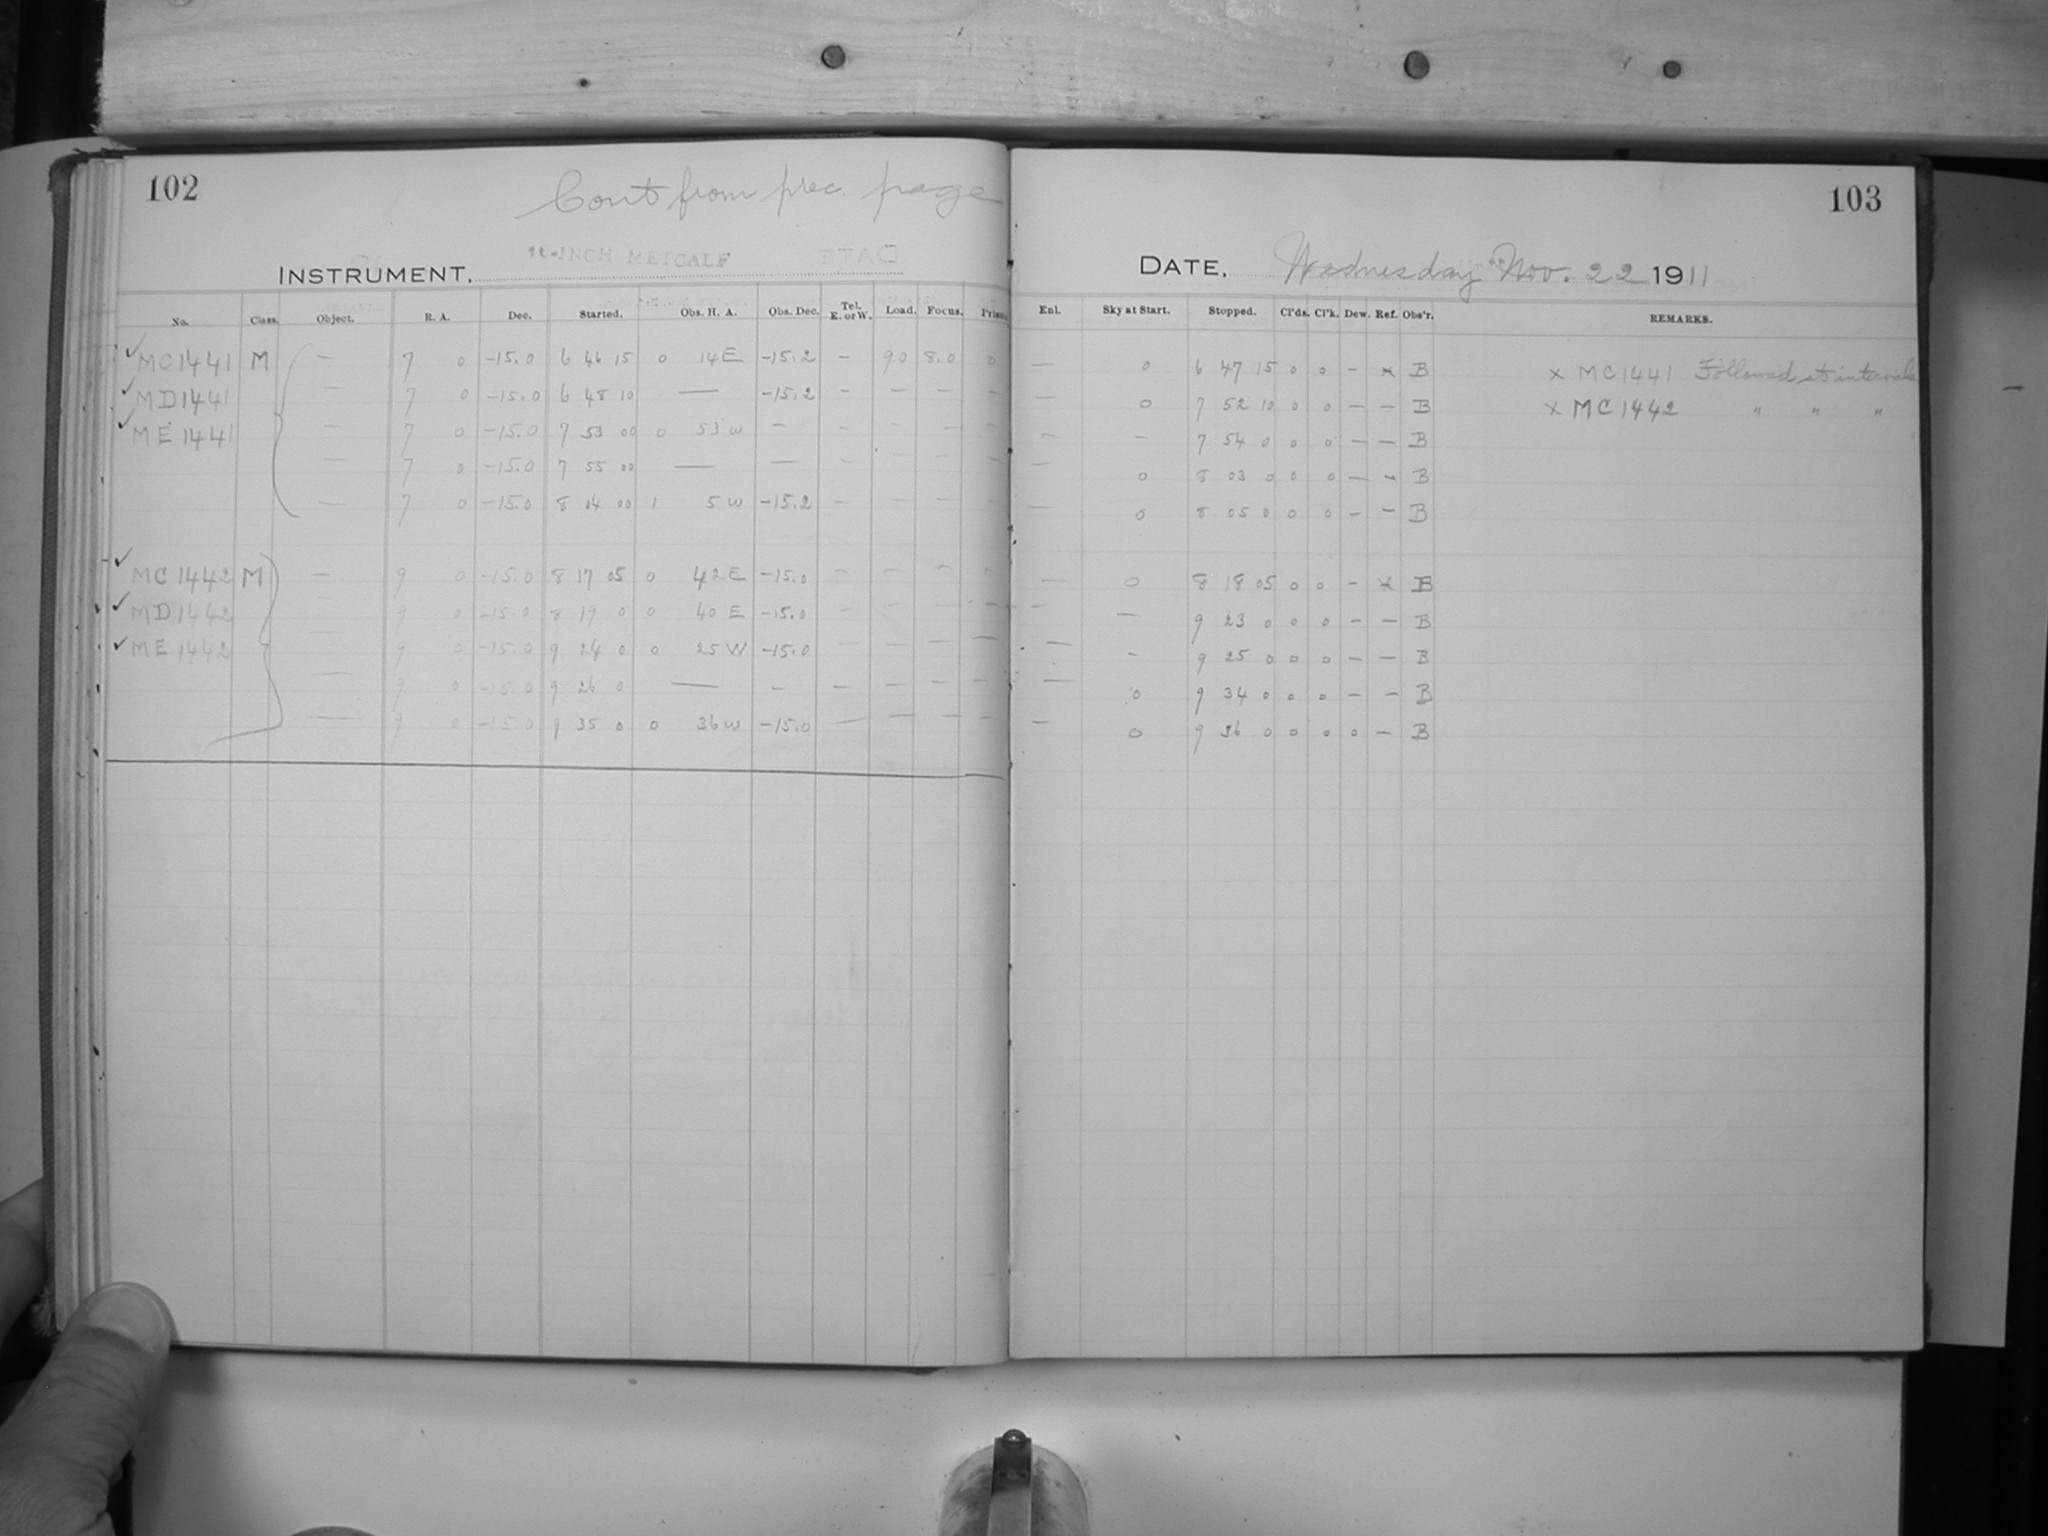 102
Cont from prec. page
INSTRUMENT, 16-INCH METCALF
No. Class. Object. R. A. Dec. Started. Obs. H. A. Obs. Dec. Tel. E. or W. Load. Focus. Prism
✓ MC1441 M — 7 0 -15.0 6 46 15 0 14 E -15.2 — 90 8.0 0
✓ MD1441 — 7 0 -15.0 6 48 10 — -15.2 — — — —
✓ ME1441 — 7 0 -15.0 7 53 00 0 53 W — — — — —
— 7 0 -15.0 7 55 00 — — — — — —
— 7 0 -15.0 8 04 00 1 5 W -15.2 — — — —
✓ MC1442 M — 9 0 -15.0 8 17 05 0 42 E -15.0 — — — —
✓ MD1442 — 9 0 -15.0 8 19 0 0 40 E -15.0 — — — —
✓ ME1442 — 9 0 -15.0 9 24 0 0 25 W -15.0 — — — —
— 9 0 -15.0 9 26 0 — — — — — —
— 9 0 -15.0 9 35 0 0 36 W -15.0 — — — —
103
DATE, Wednesday Nov. 22 1911
Enl. Sky at Start. Stopped. Cl'ds. Cl'k. Dew. Ref. Obs'r. REMARKS.
— 0 6 47 15 0 0 — x B x MC1441 Followed at intervals
— 0 7 52 10 0 0 — — B x MC1442 " " "
— — 7 54 0 0 0 — — B
— 0 8 03 0 0 0 — — B
— 0 8 05 0 0 0 — — B
— 0 8 18 05 0 0 — x B
— — 9 23 0 0 0 — — B
— — 9 25 0 0 0 — — B
— 0 9 34 0 0 0 — — B
— 0 9 36 0 0 0 0 — B